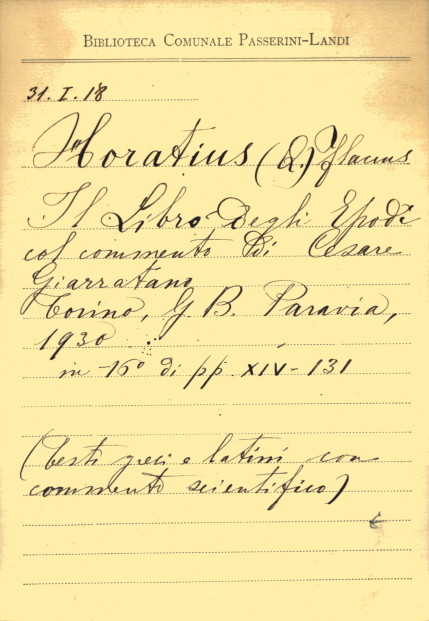 BIBLIOTECA COMUNALE PASSERINI-LANDI
31. I. 18
Horatius (Q.) Flaccus
Il Libro Degli Epodi
col commento di Cesare
Giarratano
Torino, G. B. Paravia,
1930
in -16° di pp. XIV - 131
(Testi greci e latini con
commento scientifico)